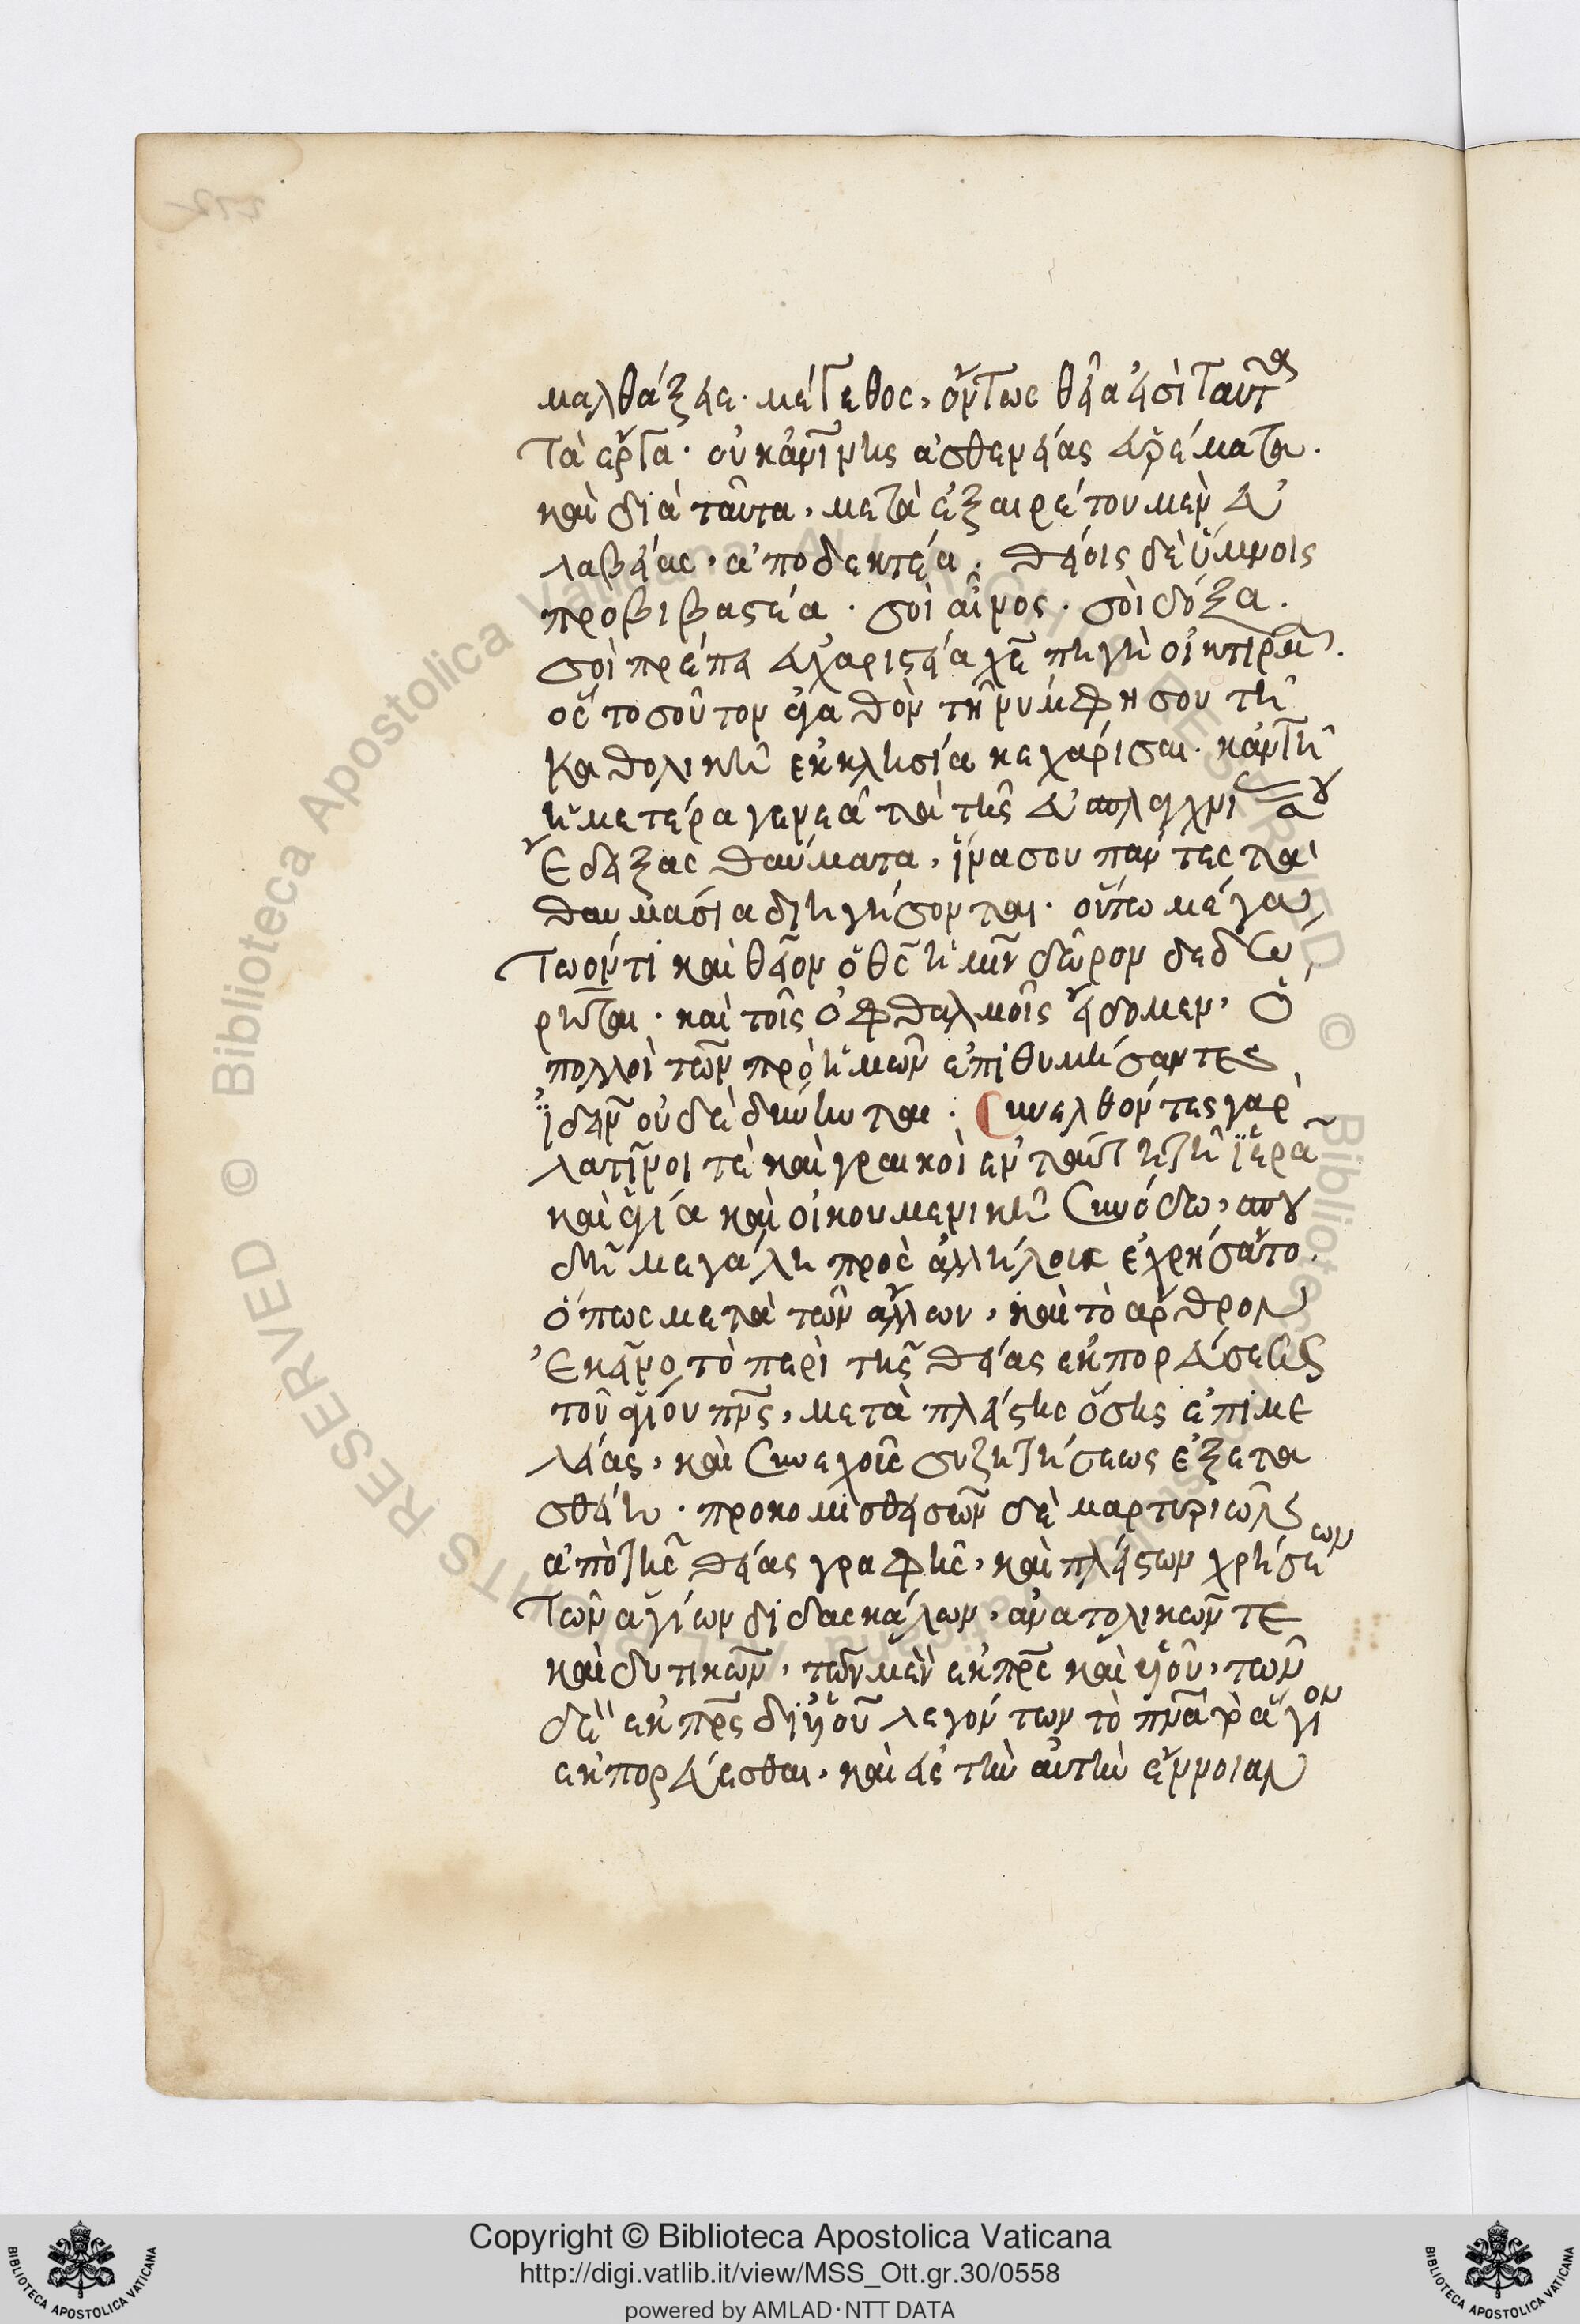 μαλθάξαε· μέγεθος, ὄντως θεῖα εἰσὶ ταῦτα
τὰ ἔργα· οὐκ ἀνθρωπίνης ἀσθενείας εὑρέματα.
καὶ διὰ ταῦτα, μετὰ ἐξαιρέτου μὲν εὐ
λαβείας, ἀποδεκτέα. θείοις δὲ ὕμνοις
προβιβαστέα. σοὶ αἶνος. σοὶ δόξα.
σοὶ πρέπει εὐχαριστία χ̅ε̅ πηγὴ οἰκτιρμῶν.
ὃς τοσοῦτον ἀγαθὸν τῇ νύμφῃ σου τῇ
καθολικῇ ἐκκλησίᾳ κεχάρισαι. κἀν τῇ
ἡμετέρᾳ γενεᾷ τὰ τῆς εὐσπλαγχνίας σου
ἔδειξας θαύματα, ἵνα σου πάντες τὰ
θαυμάσια διηγήσονται. οὕτω μέγα
τῷ ὄντι καὶ θεῖον ὁ θ̅ς̅ ἡμῖν δῶρον δεδώ
ρηται. καὶ τοῖς ὀφθαλμοῖς εἴδομεν, ὃ
πολλοὶ τῶν πρὸ ἡμῶν ἐπιθυμήσαντες
ἰδεῖν οὐ δεδύνηνται. Συνελθόντες γὰρ
λατῖνοι τὲ καὶ γραικοὶ ἐν ταύτῃ τῇ ἱερᾷ
καὶ ἁγίᾳ καὶ οἰκουμενικῇ συνόδῳ, σπου
δῇ μεγάλῃ πρὸς ἀλλήλοις ἐχρήσαντο.
ὅπως μετὰ τῶν ἄλλων, καὶ τὸ ἄρθρον
ἐκεῖνο τὸ περὶ τῆς θείας ἐκπορεύσεως
τοῦ ἁγίου πν̅ς̅, μετὰ πλείστης ὅσης ἐπιμε
λείας, καὶ συνεχοῦς συζητήσεως ἐξετα
σθείη. προκομισθεισῶν δὲ μαρτυριῶν
ἀπὸ τῆς θείας γραφῆς, καὶ πλείστων χρήσεων
τῶν ἁγίων διδασκάλων, ἀνατολικῶν τε
καὶ δυτικῶν, τῶν μὲν ἐκ πρ̅ς̅ καὶ υἱοῦ, τῶν
δὲ ἐκ πρ̅ς̅ δι' υἱοῦ λεγόντων τὸ πν̅α̅ τὸ ἅγιον
ἐκπορεύεσθαι, καὶ εἰς τὴν αὐτὴν ἔννοιαν
Copyright © Biblioteca Apostolica Vaticana
http://digi.vatlib.it/view/MSS_Ott.gr.30/0558
powered by AMLAD·NTT DATA